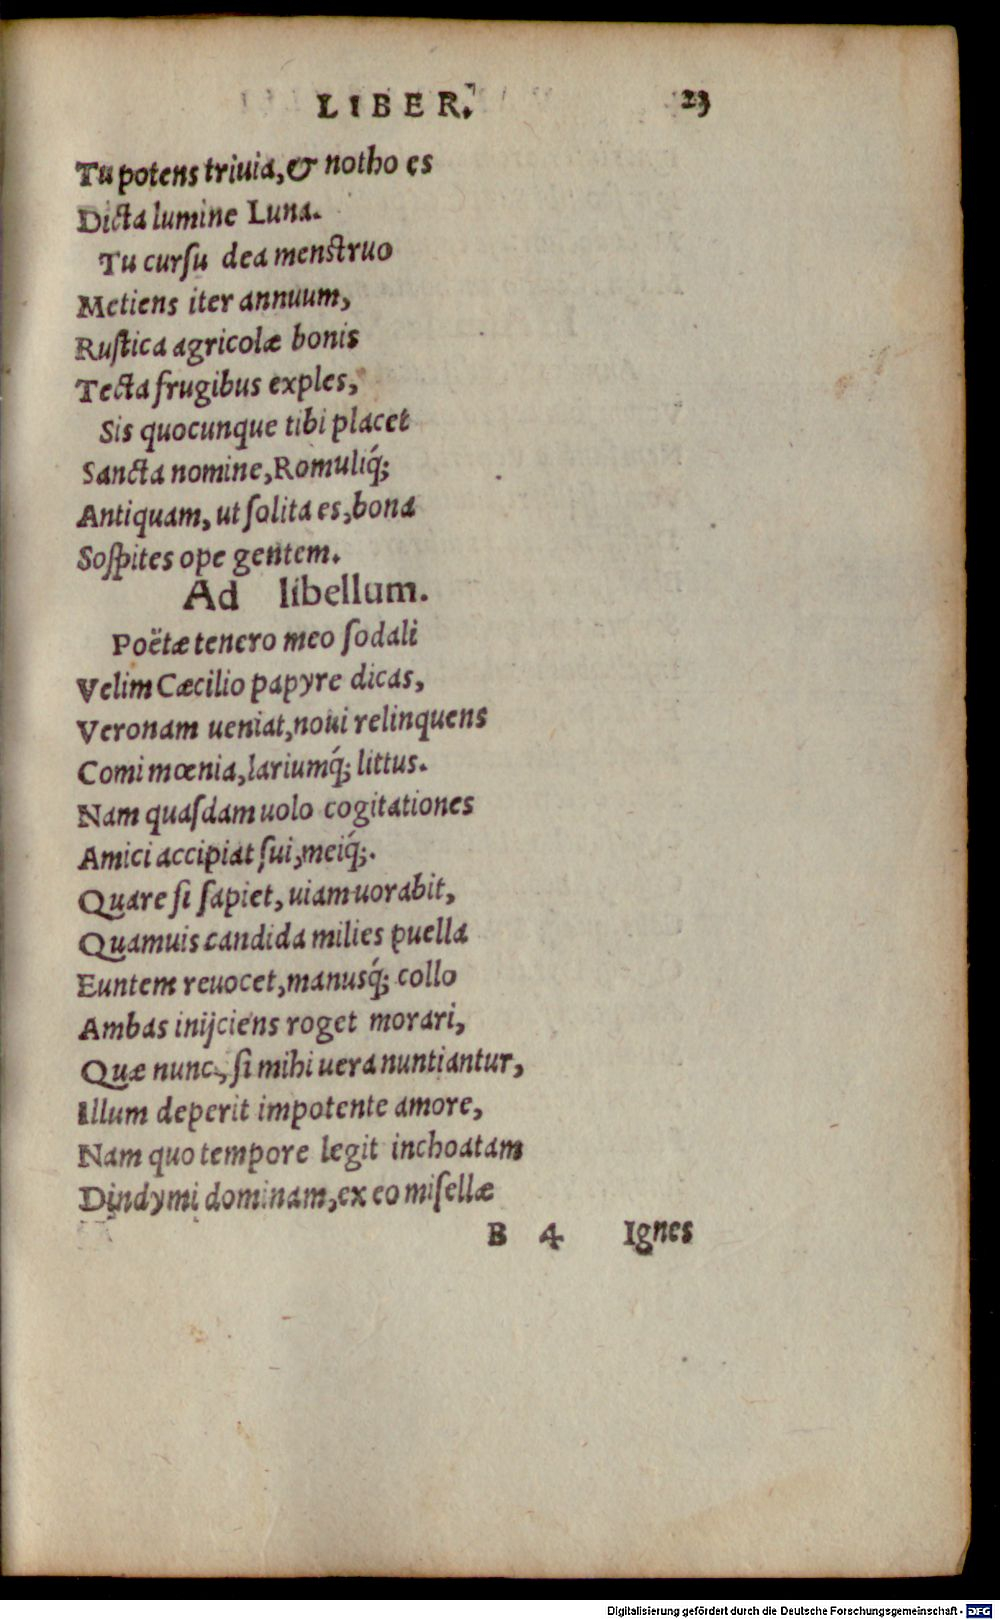 LIBER. 23
Tu potens triuia, & notho es
Dicta lumine Luna.
Tu curſu dea menſtruo
Metiens iter annuum,
Ruſtica agricolæ bonis
Tecta frugibus exples,
Sis quocunque tibi placet
Sancta nomine, Romuliq́;
Antiquam, ut ſolita es, bona
Soſpites ope gentem.
Ad libellum.
Poëtæ tenero meo ſodali
Velim Cæcilio papyre dicas,
Veronam ueniat, noui relinquens
Comi mœnia, lariumq́; littus.
Nam quaſdam uolo cogitationes
Amici accipiat ſui, meiq́;.
Quare ſi ſapiet, uiam uorabit,
Quamuis candida milies puella
Euntem reuocet, manusq́; collo
Ambas inijciens roget morari,
Quæ nunc, ſi mihi uera nuntiantur,
Illum deperit impotente amore,
Nam quo tempore legit inchoatam
Dindymi dominam, ex eo miſellæ
B 4 Ignes
Digitalisierung gefördert durch die Deutsche Forschungsgemeinschaft - DFG